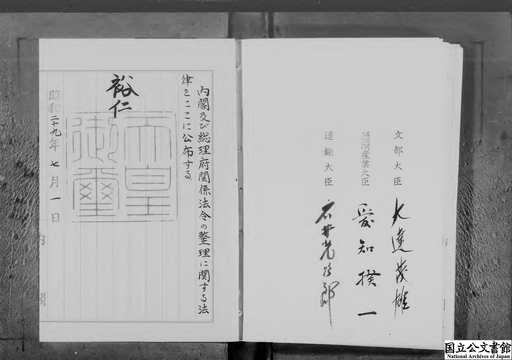 文部大臣 大達茂雄
通商産業大臣 愛知揆一
運輸大臣 石井光次郎
内閣及び総理府関係法令の整理に関する法
律をここに公布する
裕仁
天皇
御璽
昭和二十九年七月一日
内閣
国立公文書館
National Archives of Japan